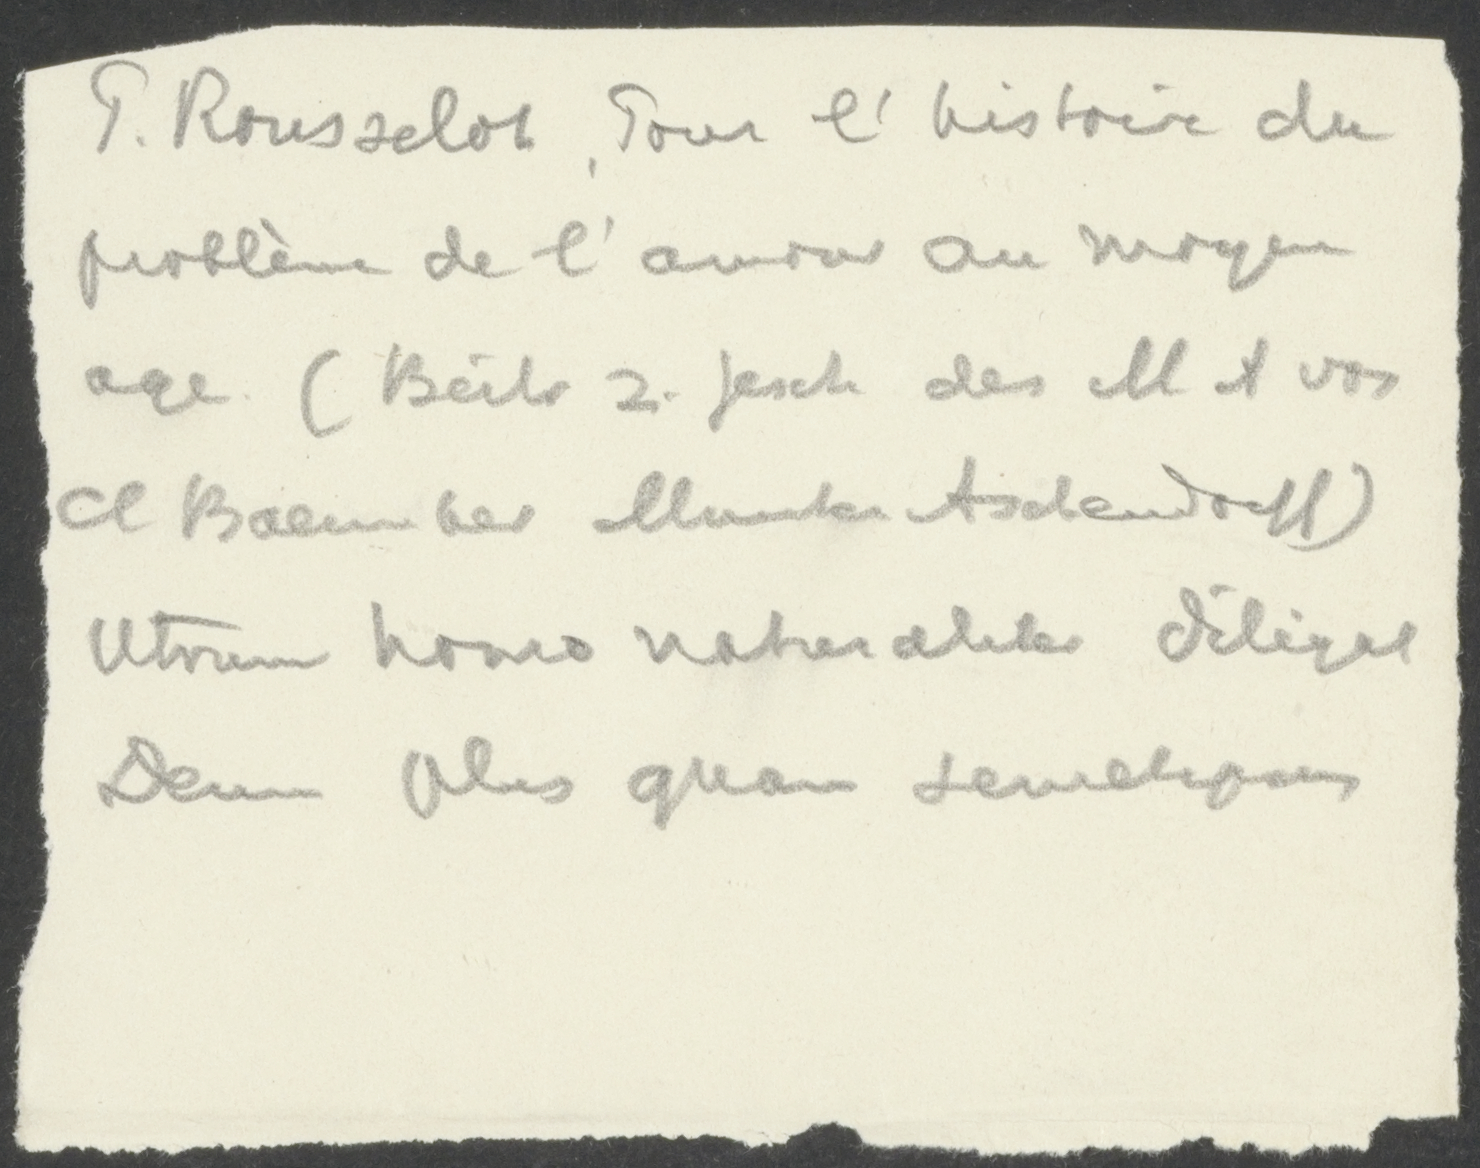 P. Rousselot, Pour l'histoire du
problème de l'amour au moyen
age. (Beitr z. Gesch des M A von
Cl Baeumker Munster Aschendorff)
Utrum homo naturaliter diligat
Deum plus quam semetipsum